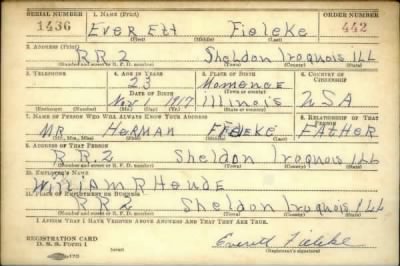 SERIAL NUMBER 1. NAME (Print) ORDER NUMBER
1436 EVERETT Fieleke 442
(First) (Middle) (Last)
2. ADDRESS (Print)
R R 2 Sheldon Iroquois ILL
(Number and street or R. F. D. number) (Town) (County) (State)
3. TELEPHONE 4. AGE IN YEARS 5. PLACE OF BIRTH 6. COUNTRY OF CITIZENSHIP
23 Momence
DATE OF BIRTH (Town or county)
Nov 1 1917 Illinois USA
(Exchange) (Number) (Mo.) (Day) (Yr.) (State or country)
7. NAME OF PERSON WHO WILL ALWAYS KNOW YOUR ADDRESS 8. RELATIONSHIP OF THAT PERSON
MR HERMAN FIELEKE FATHER
(Mr., Mrs., Miss) (First) (Middle) (Last)
9. ADDRESS OF THAT PERSON
R R. 2 Sheldon Iroquois ILL
(Number and street or R. F. D. number) (Town) (County) (State)
10. EMPLOYER'S NAME
William R Houde
11. PLACE OF EMPLOYMENT OR BUSINESS
R R 2 Sheldon Iroquois ILL
(Number and street or R. F. D. number) (Town) (County) (State)
I AFFIRM THAT I HAVE VERIFIED ABOVE ANSWERS AND THAT THEY ARE TRUE.
REGISTRATION CARD
D. S. S. Form 1
(over)
Everett Fieleke
(Registrant's signature)